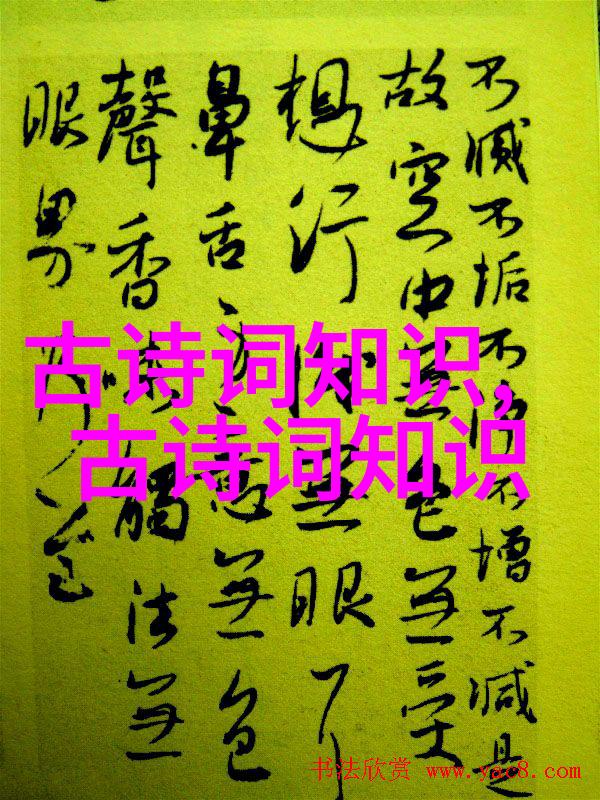 不滅不垢不不增不減是
故空中無色無受
想行無眼耳
鼻舌身意無色
聲香味觸法無
眼界乃至
古诗词知识,
古诗词知识
书法欣赏 www.yac8.com